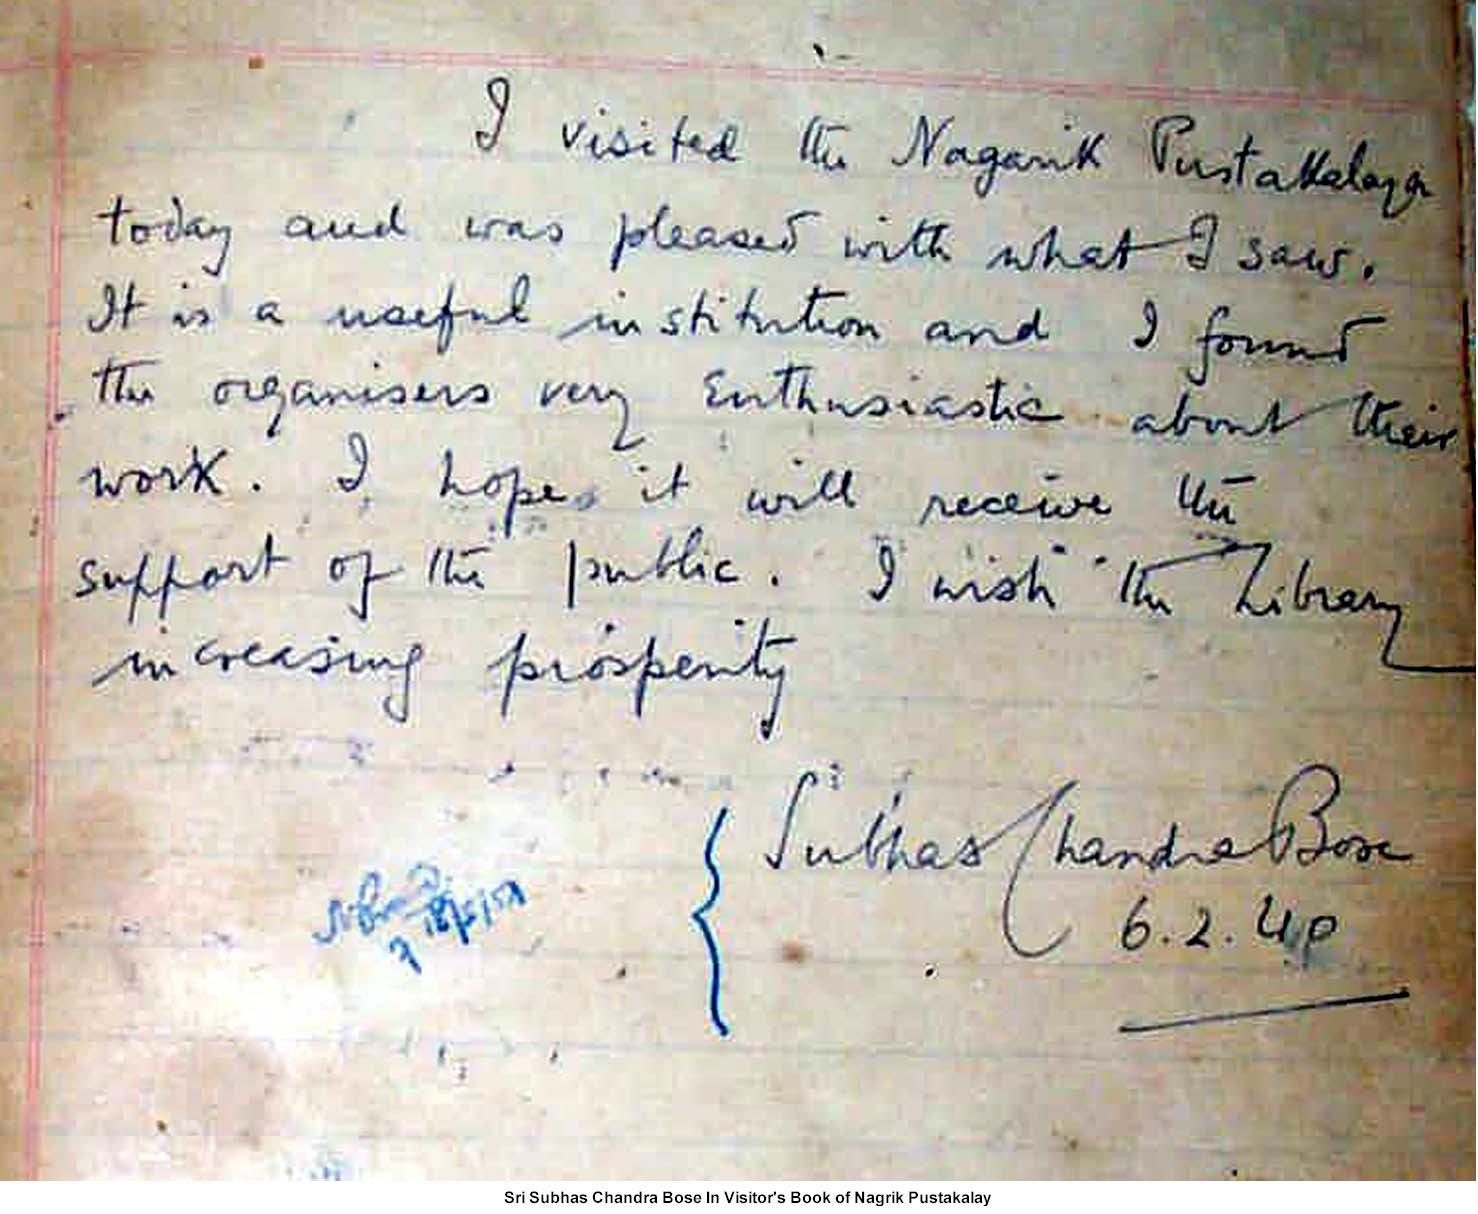 I visited the Nagarik Pustakalaya
today and was pleased with what I saw.
It is a useful institution and I found
the organisers very enthusiastic about their
work. I hope it will receive the
support of the public. I wish the Library
increasing prosperity
Subhas Chandra Bose
6.2.40
Sri Subhas Chandra Bose In Visitor's Book of Nagrik Pustakalay